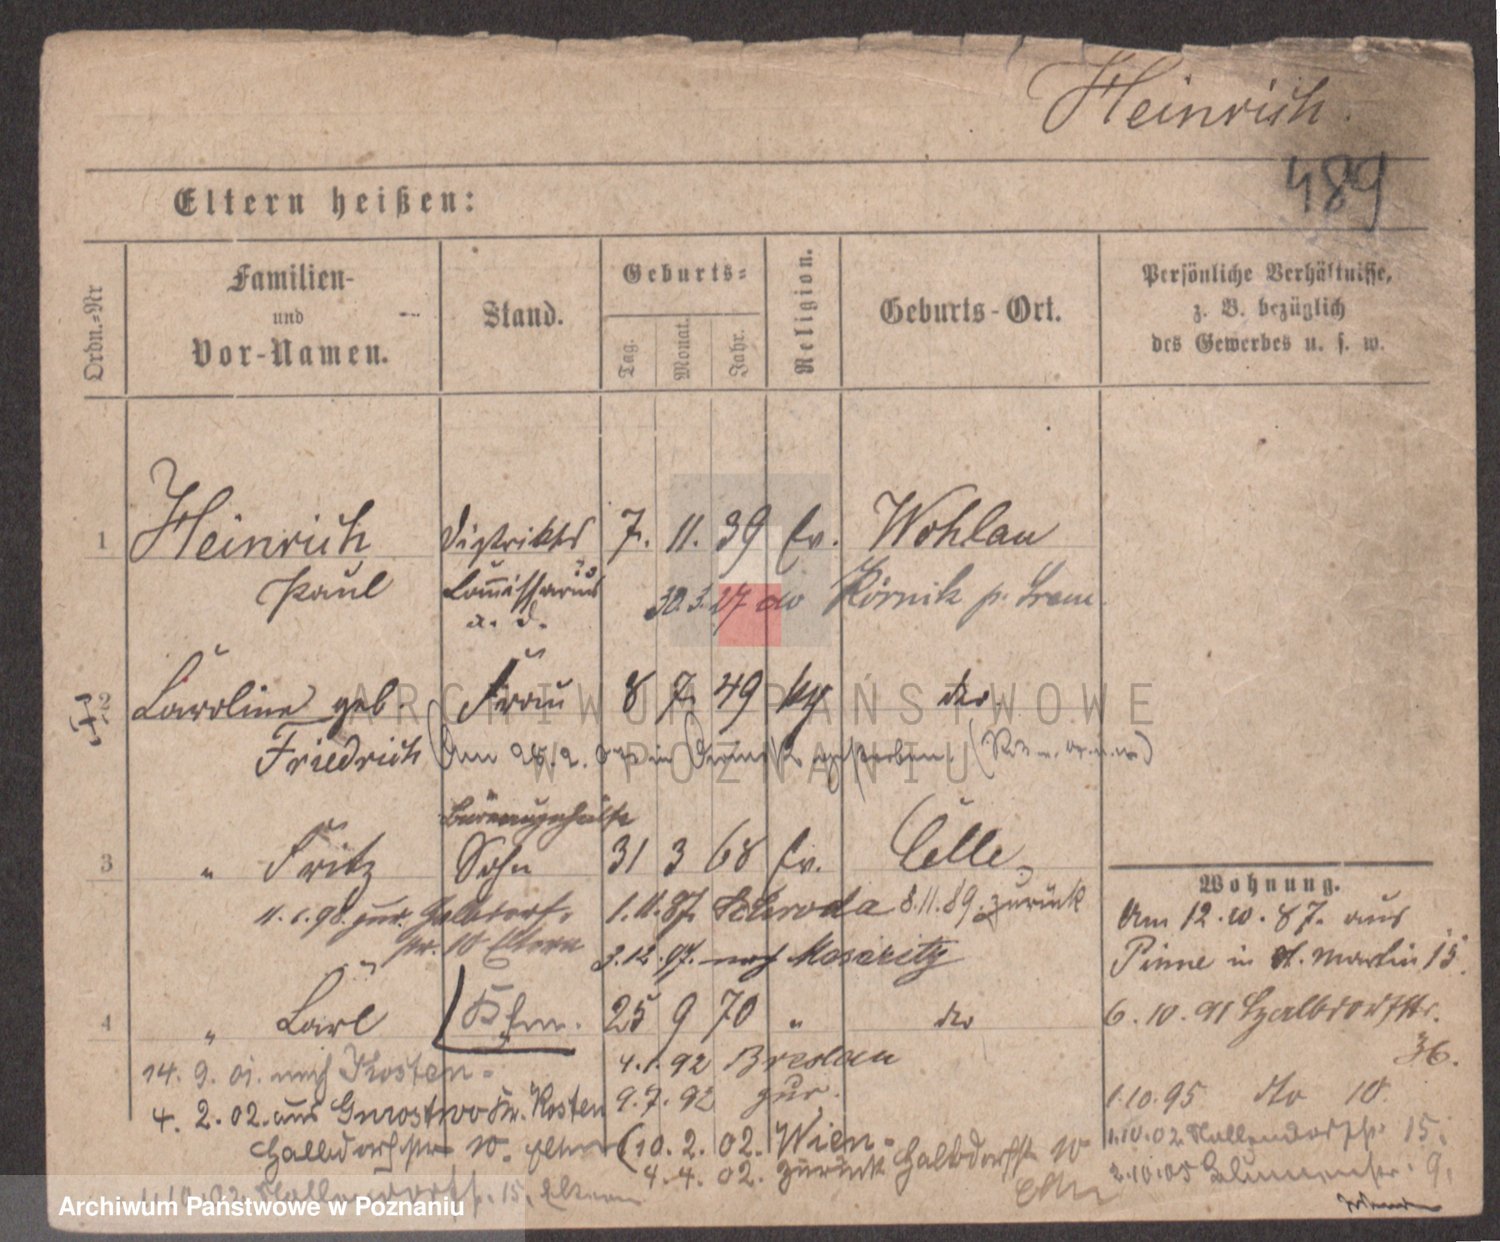 Heinrich.
489
Eltern heißen:
Ordn.-Nr
Familien-
und
Vor-Namen.
Stand.
Geburts-
Tag.
Monat.
Jahr.
Religion.
Geburts-Ort.
Persönliche Verhältnisse,
z. B. bezüglich
des Gewerbes u. s. w.
1 Heinrich Distrikts 7. 11. 39 Ev. Wohlau
Paul Commissarius 30.3.27 do Kórnik
a. D.
2 Caroline geb. Frau 8 7. 49 do
Friedrich
ARCHIWUM PAŃSTWOWE
W POZNANIU
3 " Fritz Sohn 31 3 68 Ev. Celle
11.1.98 zur. 1.11.87. Schroda 8.11.89. zurück
10 Eltern 3.12.97. nach Meseritz
Wohnung.
Am 12.10.87. aus
Pinne in St. Martin 15.
4 " Carl 25 9 70 " do
6.10.91
36.
14. 9. 01. nach Kosten 4.1.92 Breslau
4. 2. 02. aus Kosten 9.7.92 zur.
1.10.95 do 10.
10. (10. 2. 02. Wien
4. 4. 02. zurück 10
1.10.02 15.
2.10.05 9.
1.10.02 15.
Archiwum Państwowe w Poznaniu